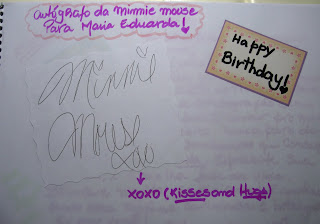 autógrafo da minnie mouse
Para Maria Eduarda!
Happy
Birthday!
Minnie
Mouse
xoxo
xoxo (Kisses and Hugs)